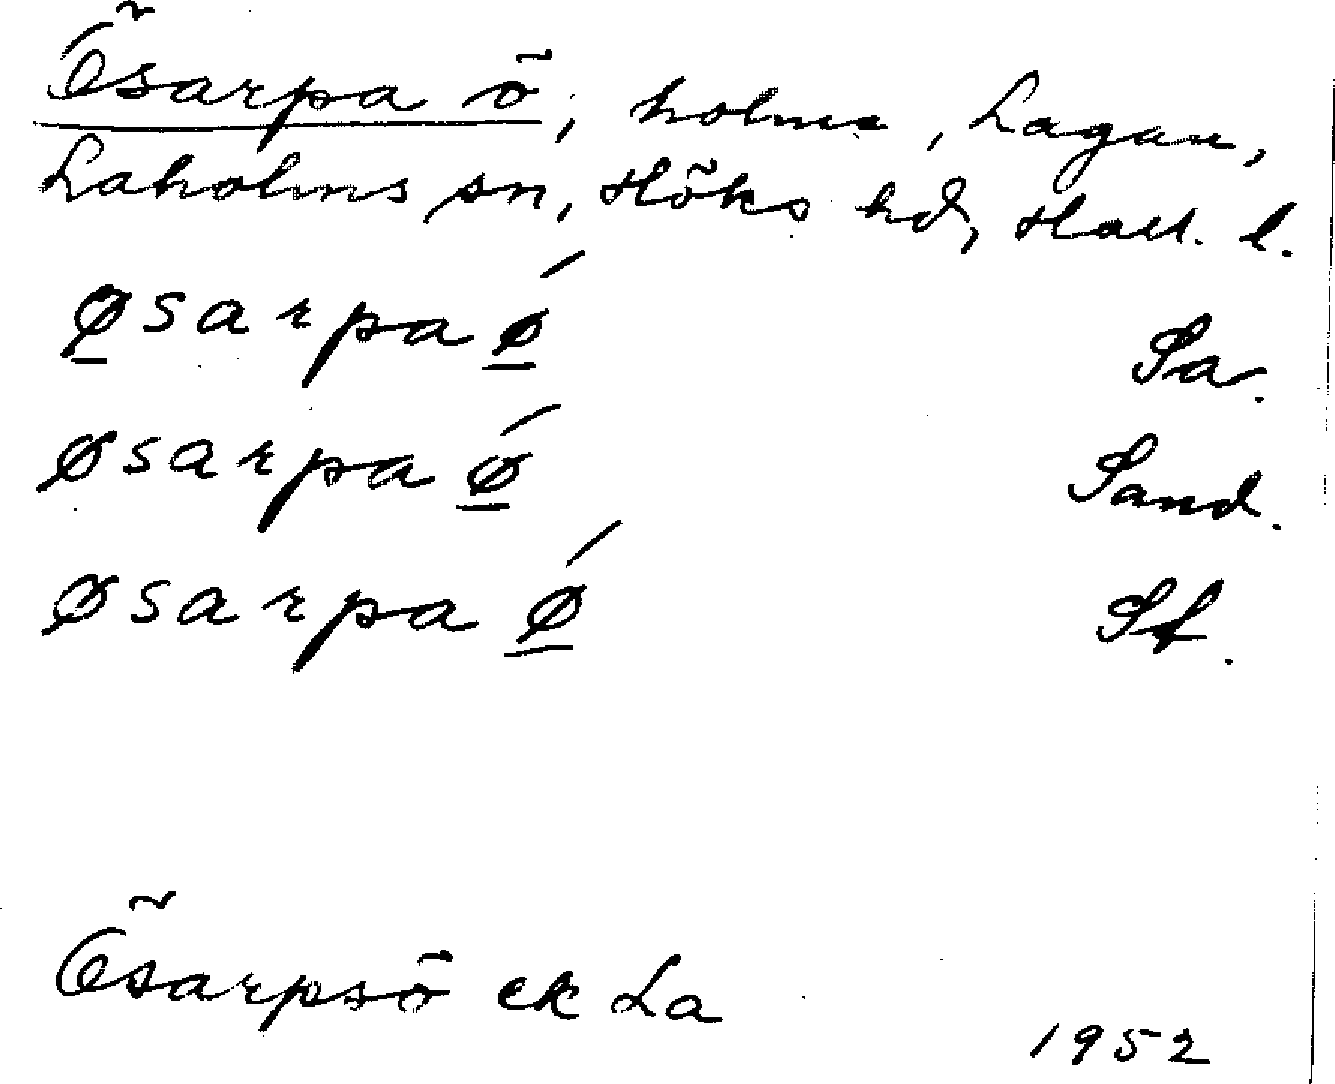 Ösarpa ö, holme, Lagan,
Laholms sn, Höks hd, Hall. l.
ø̲sarpaǿ̲ Sa.
øsarpaǿ̲ Sand.
øsarpaǿ̲ Sf.
Ösarpsö ek La
1952